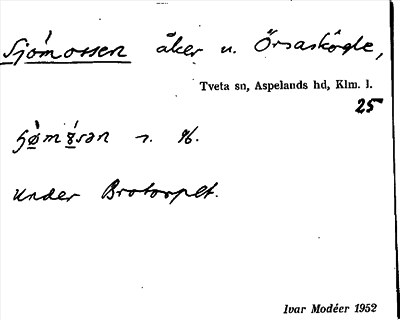 Sjómossen åker u. Örsaskögle,
Tveta sn, Aspelands hd, Klm. l.
25
Under Brotorplet.
Ivar Modéer 1952